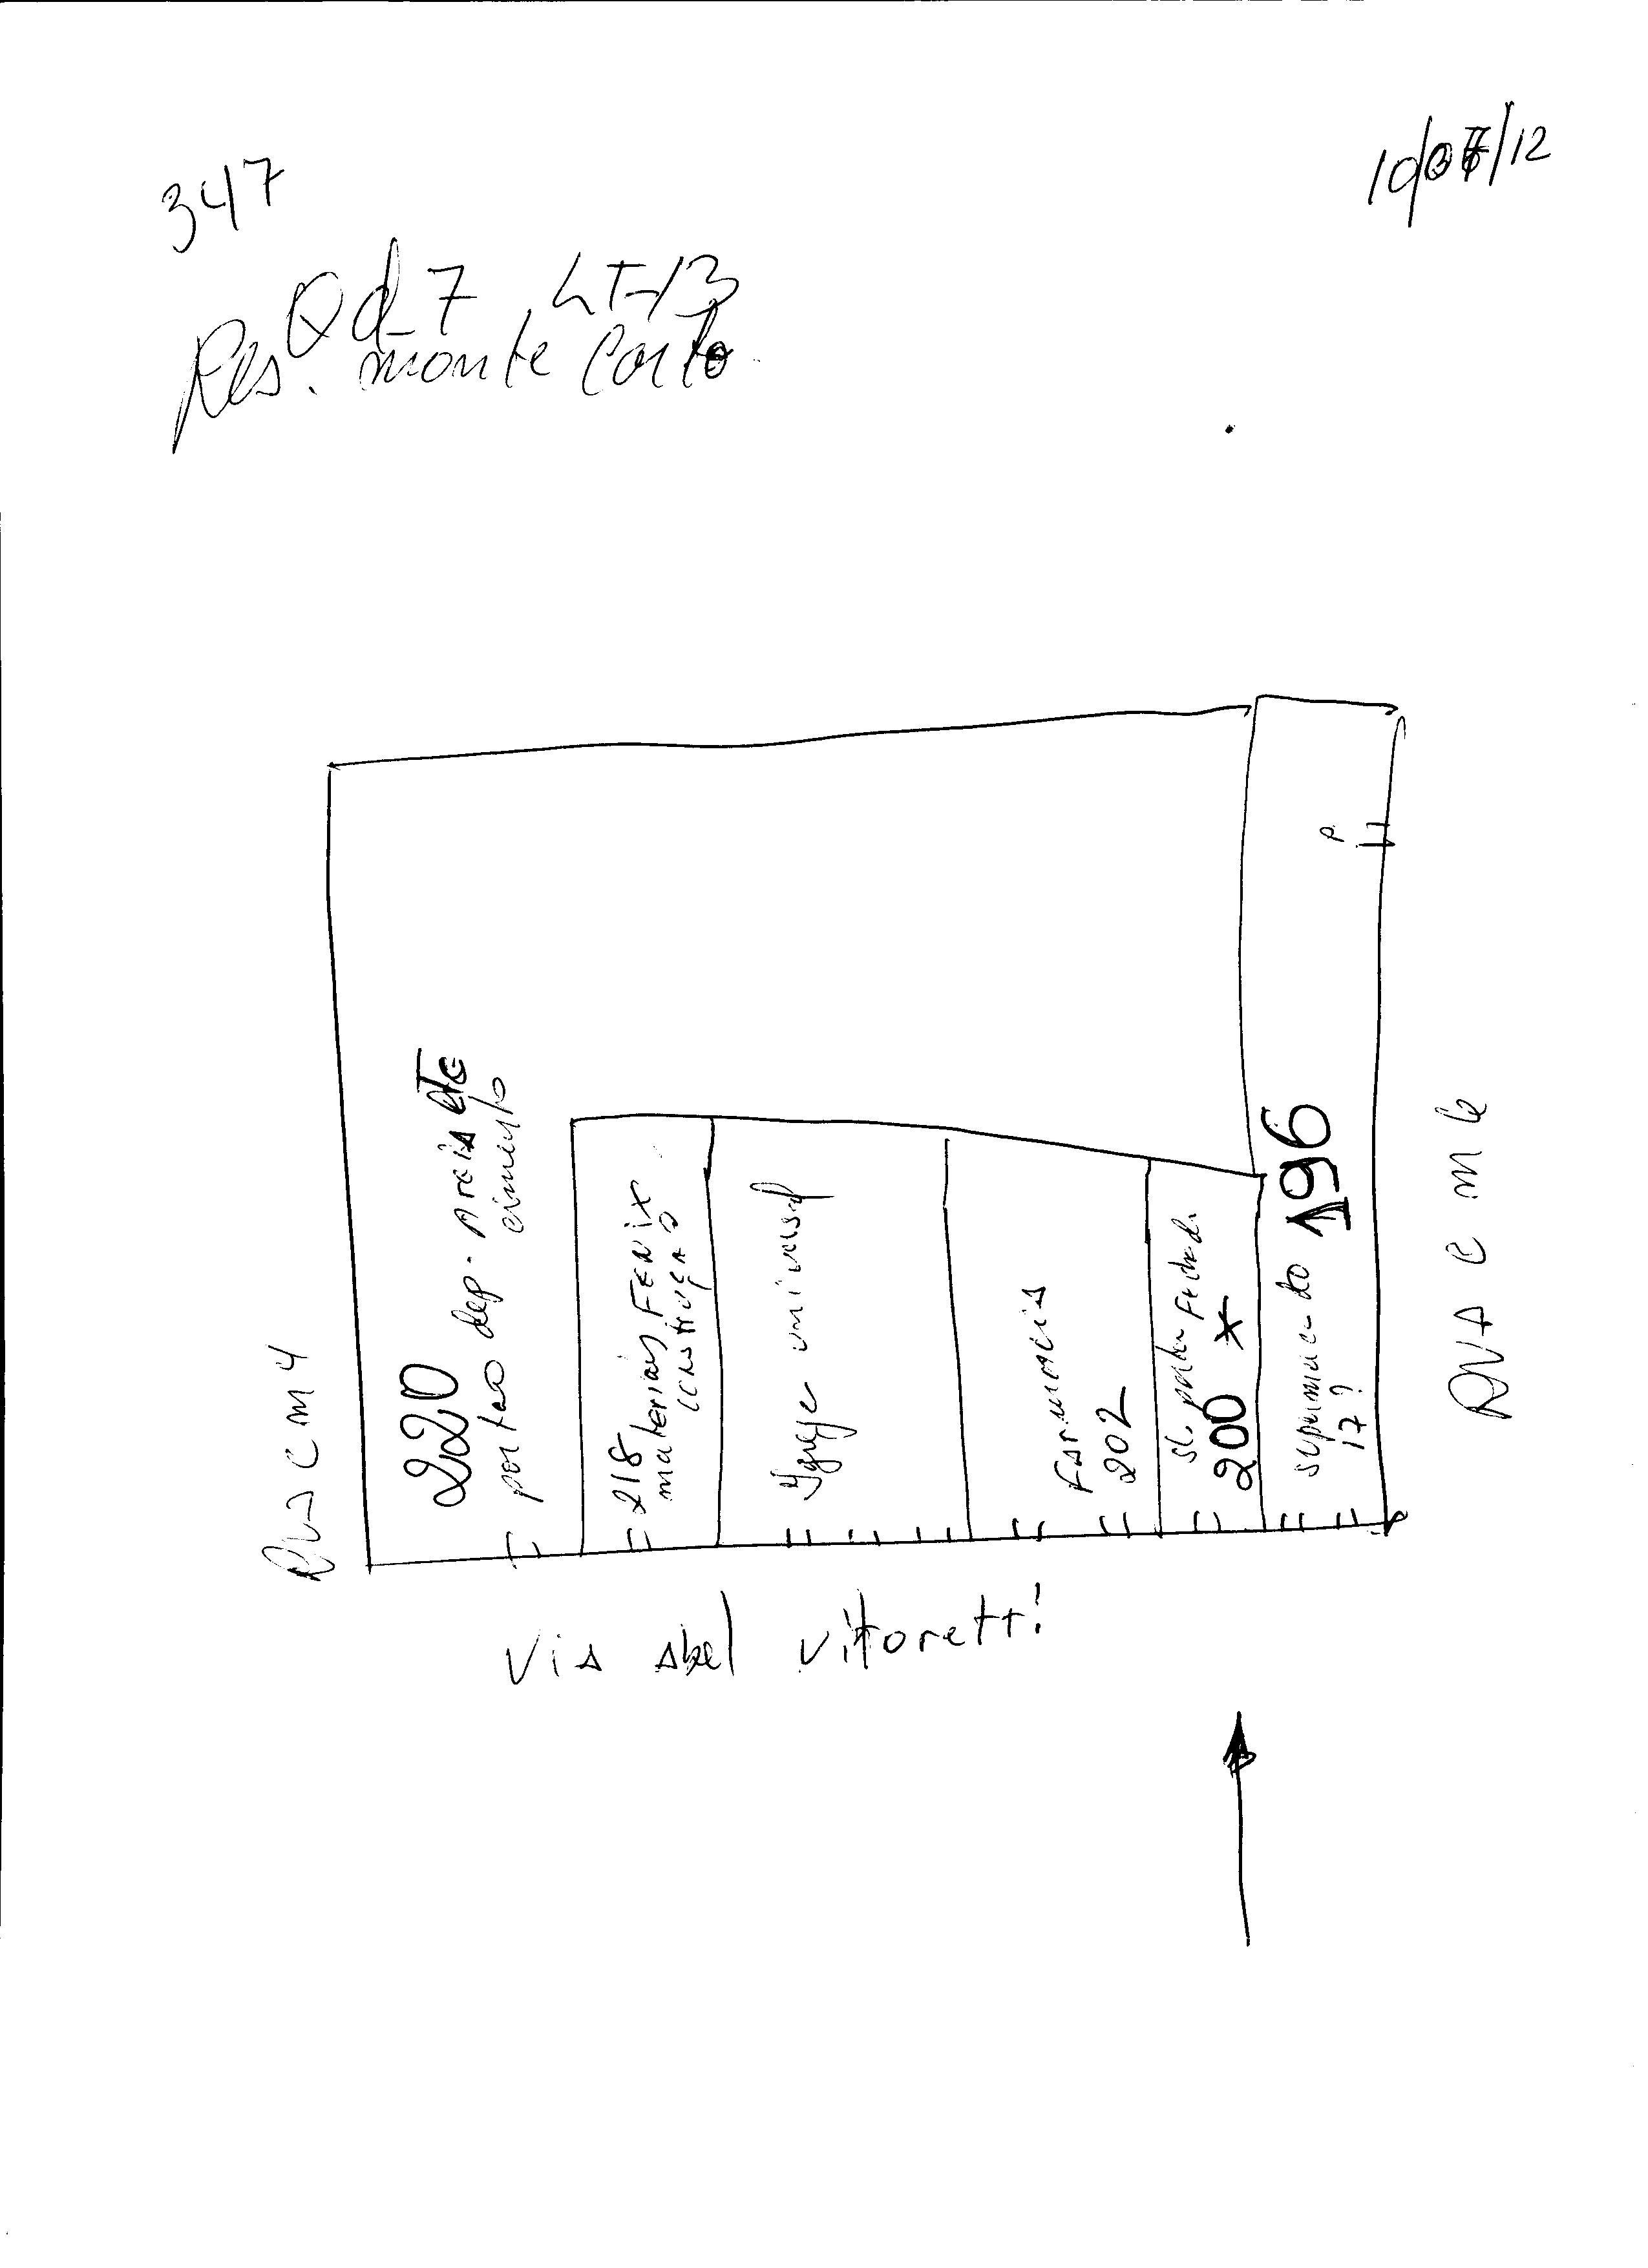 347
10/07/12
Qd 7 LT-13
Res. monte Carlo
Rua cm4
220
portao dep. Areia etc
cimento
218
materiais Fenix
construção
Igreje universal
Farmacia
202
sl. porta Fechada
200 *
supermercado 196
17?
P
RUA C M 6
Via abel vitoretti